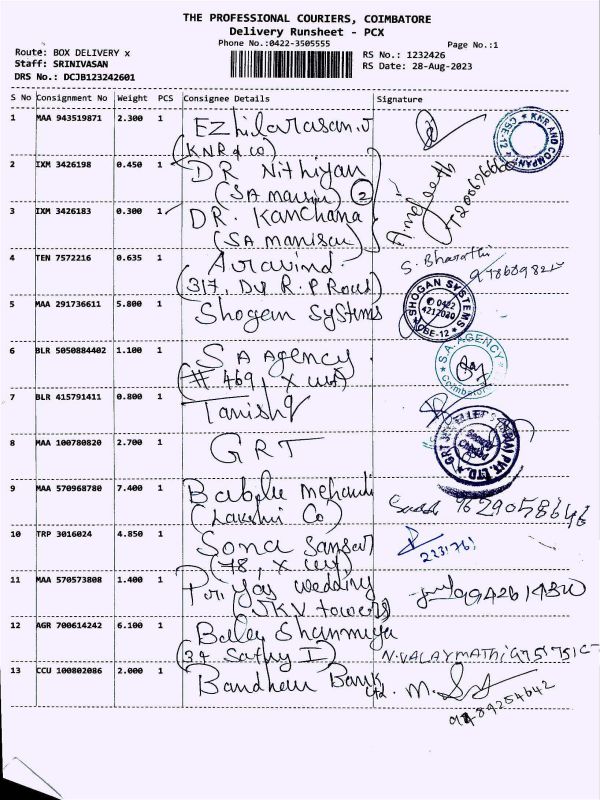 THE PROFESSIONAL COURIERS, COIMBATORE
Delivery Runsheet - PCX
Phone No.:0422-3505555
Page No.:1
Route: BOX DELIVERY x
Staff: SRINIVASAN
DRS No.: DCJB123242601
RS No.: 1232426
RS Date: 28-Aug-2023
S No Consignment No Weight PCS Consignee Details Signature
1 MAA 943519871 2.300 1 Ezhilarasan.v
(KNR & Co) KNR AND COMPANY CSE-12
2 IXM 3426198 0.450 1 DR Nithiyan
(SA mansion) 2
3 IXM 3426183 0.300 1 DR. Kanchana
(SA manison)
4 TEN 7572216 0.635 1 Aravind. S. Bharathi
(317, D.B R.P Road)
5 MAA 291736611 5.800 1 Shogan Systems SHOGAN SYSTEMS
✆ 0422
4217030
CBE-12
6 BLR 5050884402 1.100 1 SA Agency. S.A. AGENCY
(# 469, X cut) Coimbatore
7 BLR 415791411 0.800 1 Tanishq
8 MAA 100780820 2.700 1 GRT PVT. LTD.
9 MAA 570968780 7.400 1 Bablu mehandi 9629058646
(Lakshmi Co)
10 TRP 3016024 4.850 1 Sona Sansar
(78, X cut)
11 MAA 570573808 1.400 1 Priyas wedding
(JKV towers)
12 AGR 700614242 6.100 1 Balaj Shanmuga
(34 Sathy I) N.VALAYMATHI
13 CCU 100802086 2.000 1 Bandhan Bank
Ltd. 9489254642